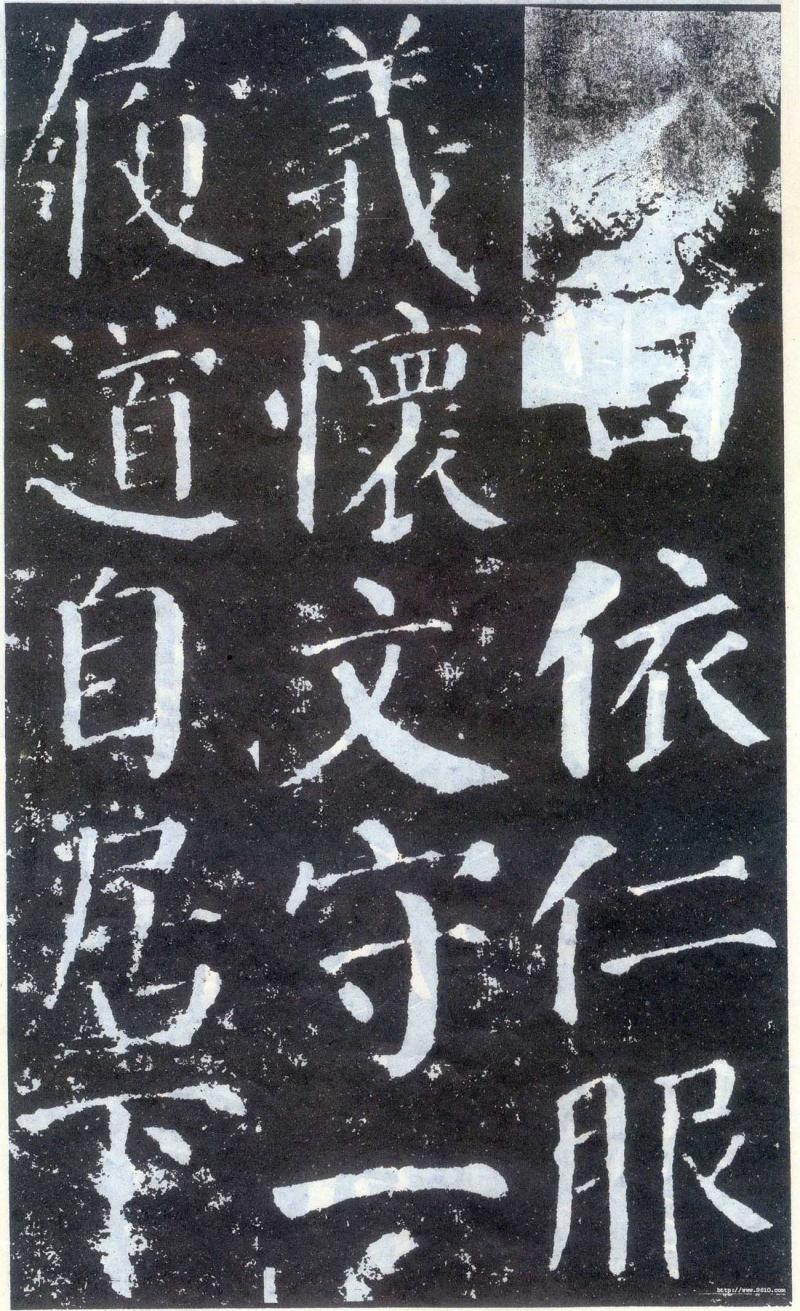 依仁服
義懷文守一
履道自居下
http://www.9610.com